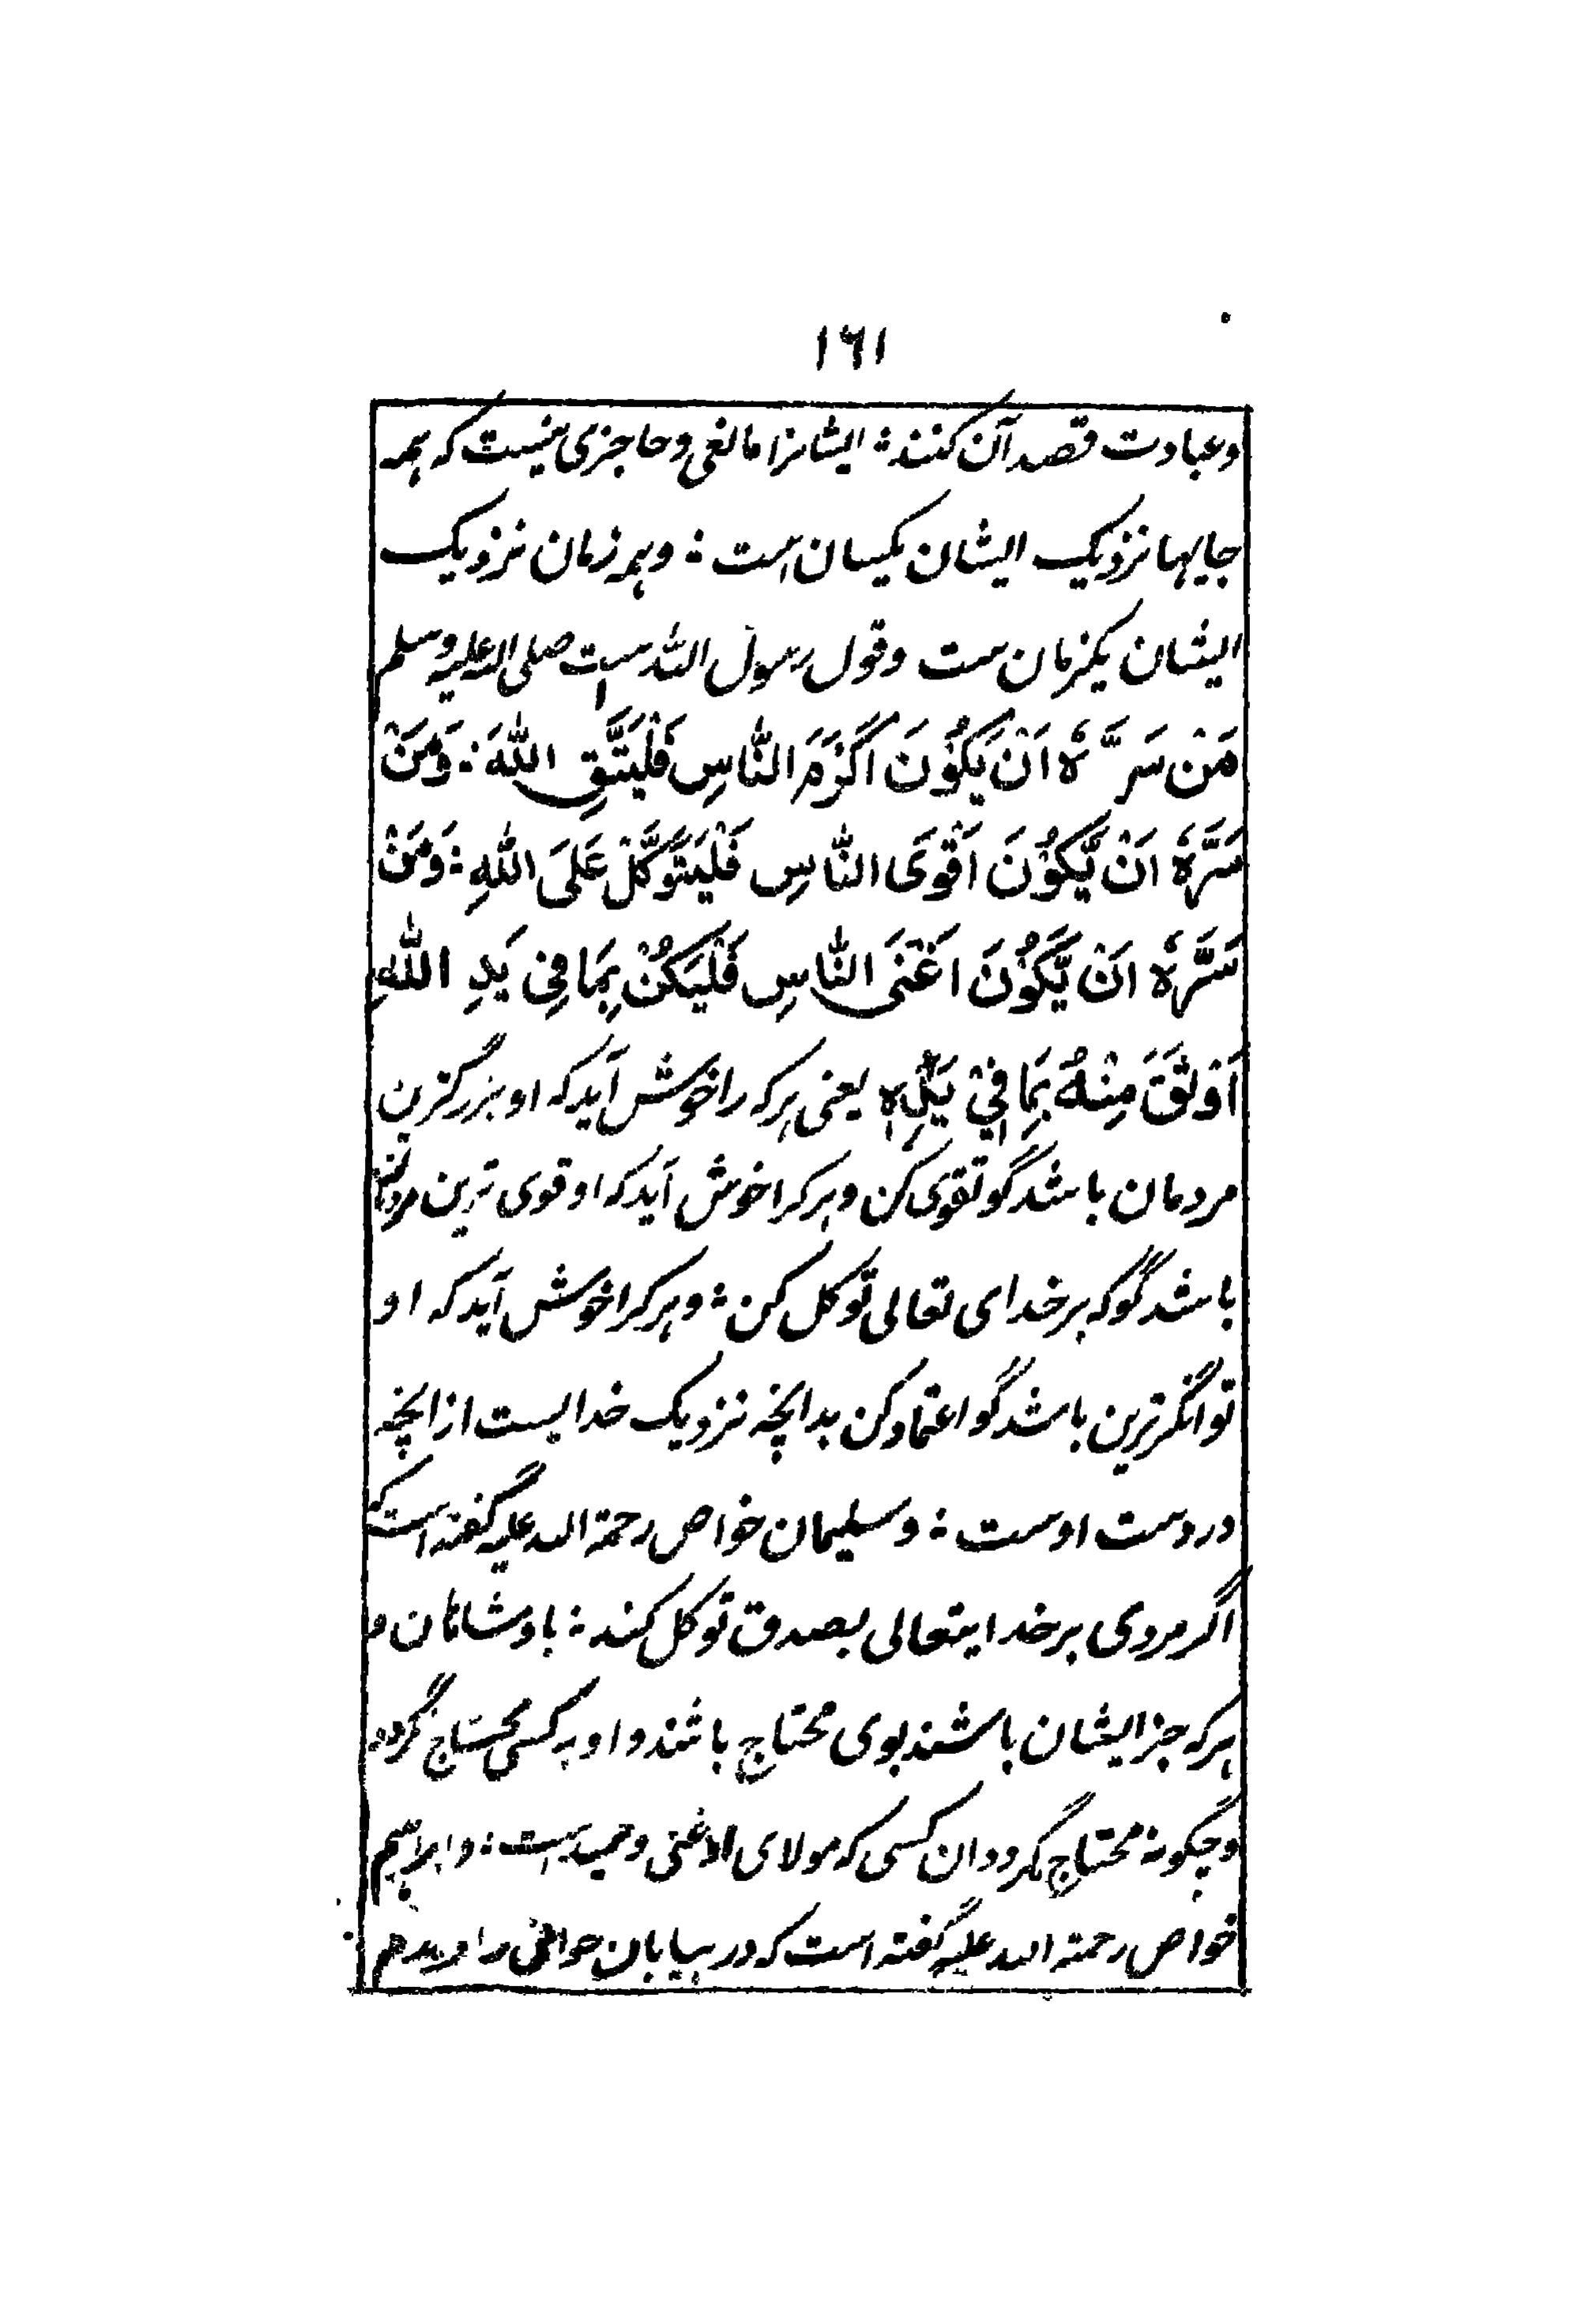 ۱۶۱
وعبادت قصد آن کنند: ایشانرا مانعی وحاجزی نیست که همه
جایها نزدیک ایشان یکسان است: وهمه زمان نزدیک
ایشان یکزمان ست وقول رسول الله ست صلی الله علیه وسلم
مَنْ سَرَّهٗ اَنْ يَّكُوْنَ اَكْرَمَ النَّاسِ فَلْيَتَّقِ اللّٰهَ: وَمَنْ
سَرَّهٗ اَنْ يَّكُوْنَ اَقْوَى النَّاسِ فَلْيَتَوَكَّلْ عَلَى اللّٰهِ: وَمَنْ
سَرَّهٗ اَنْ يَّكُوْنَ اَغْنَى النَّاسِ فَلْيَكُنْ بِمَا فِيْ يَدِ اللّٰهِ
اَوْثَقَ مِنْهُ بِمَا فِيْ يَدِهٖ یعنی هرکه را خوش آید که او بزرگترین
مردمان باشد گو تقوی کن وهر کرا خوش آید که او قوی ترین مردمان
باشد گو که بر خدای تعالی توکل کن: وهر کرا خوش آید که او
توانگر ترین باشد گو اعتماد کن بدانچه نزدیک خدایست از انچه
در دست اوست: وسلیمان خواص رحمة الله علیه گفته است که
اگر مردی بر خدایتعالی بصدق توکل کند: بادشاهان و
هرکه جز ایشان باشند بوی محتاج باشند واو به کسی محتاج نگردد
وچگونه محتاج گردد ان کسی که مولای او غنی وحمید است: وابراهیم
خواص رحمة الله علیه گفته است که در بیابان را دیدم